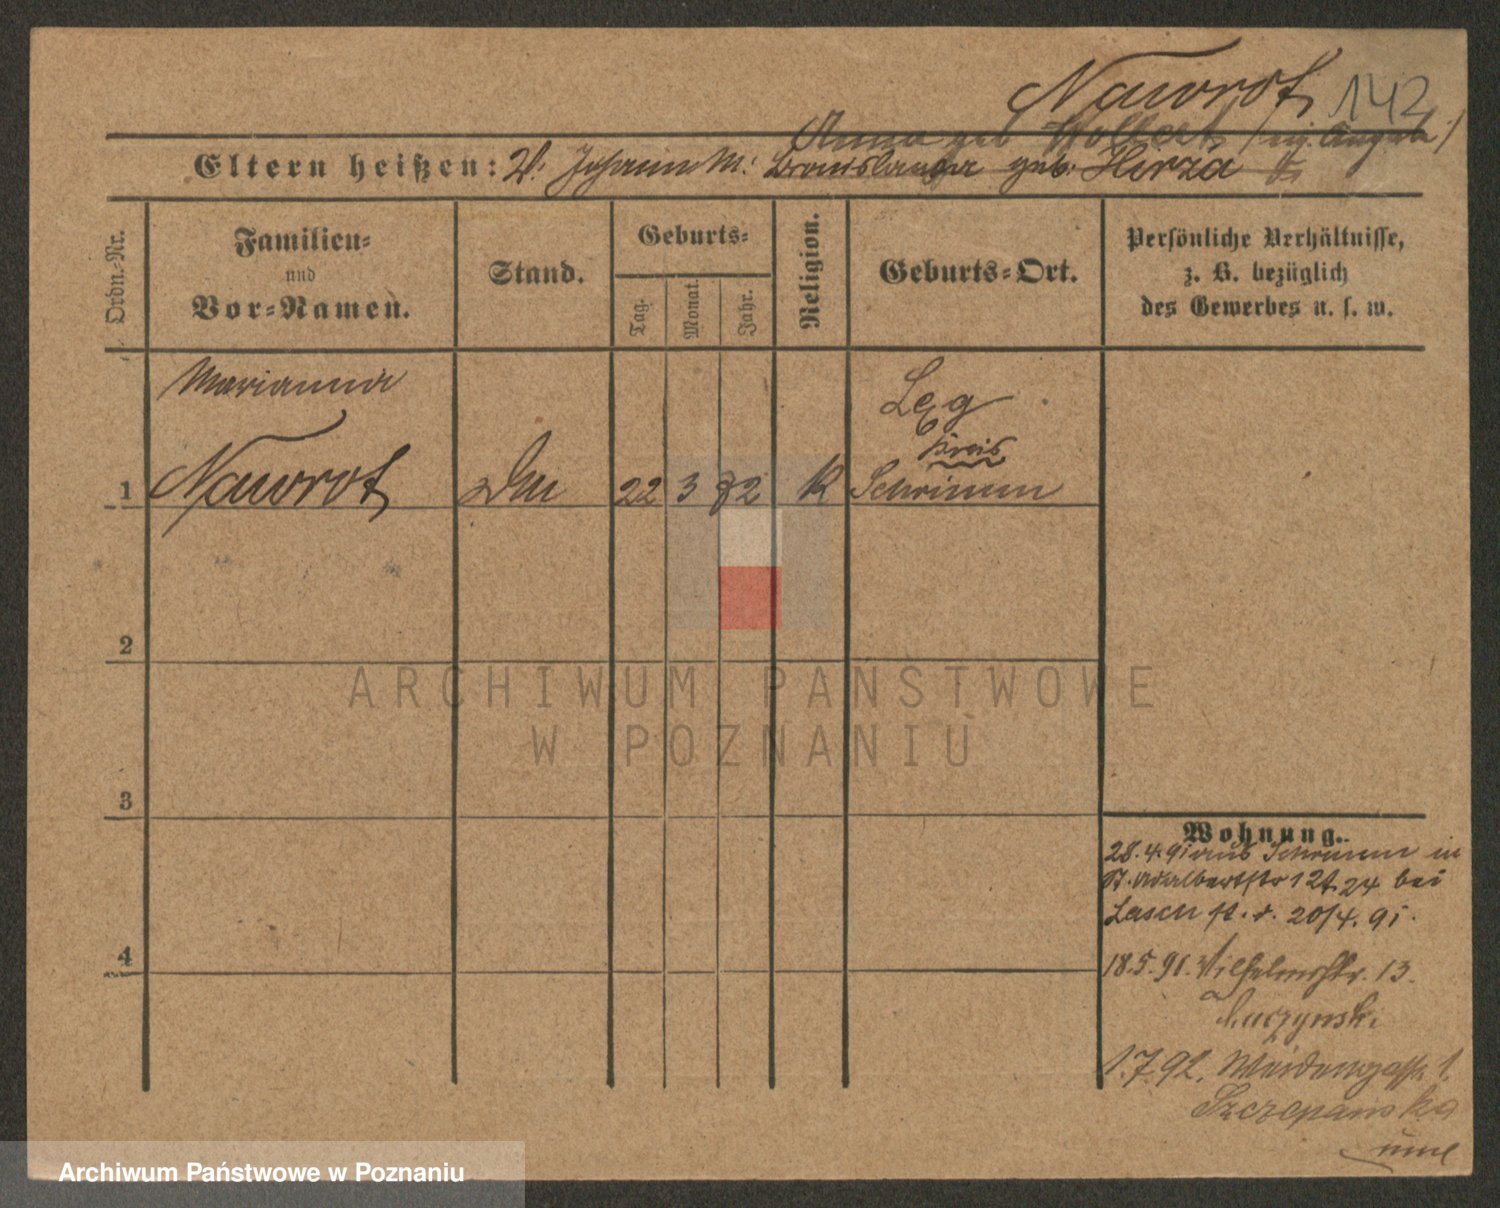 Nawrot 142
Anna geb
Eltern heißen: V. Johann M. Bronislawa geb. Herza
Ordn.-Nr.
Familien-
und
Vor-Namen.
Stand.
Geburts-
Tag.
Monat.
Jahr.
Religion.
Geburts-Ort.
Persönliche Verhältnisse,
z. B. bezüglich
des Gewerbes u. s. w.
Marianna
Nawrot
1
22 3 72 K
Kreis
Schrimm
2
3
4
Wohnung.
28.4.91 aus Schrimm in
St. Adalbertstr 12 24 bei
20/4.91.
18.5.91. Wilhelmstr. 13.
1.7.92. Weidengasse 1.
Szczepanska
ARCHIWUM PAŃSTWOWE
W POZNANIU
Archiwum Państwowe w Poznaniu